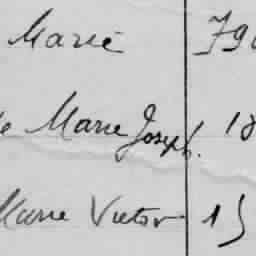 Marie 79
Marie Joseph. 18
Marie Victor 15